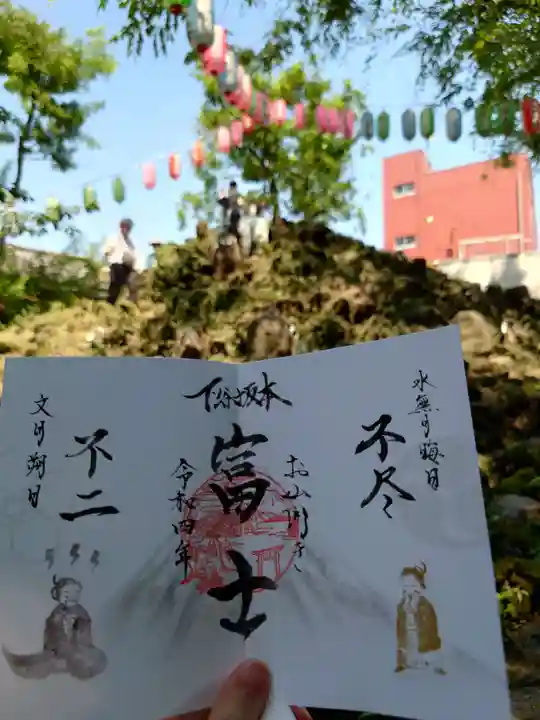 水無月晦日
不尽
お山開き
本坂谷下
富士
令和四年
不二
文月朔日